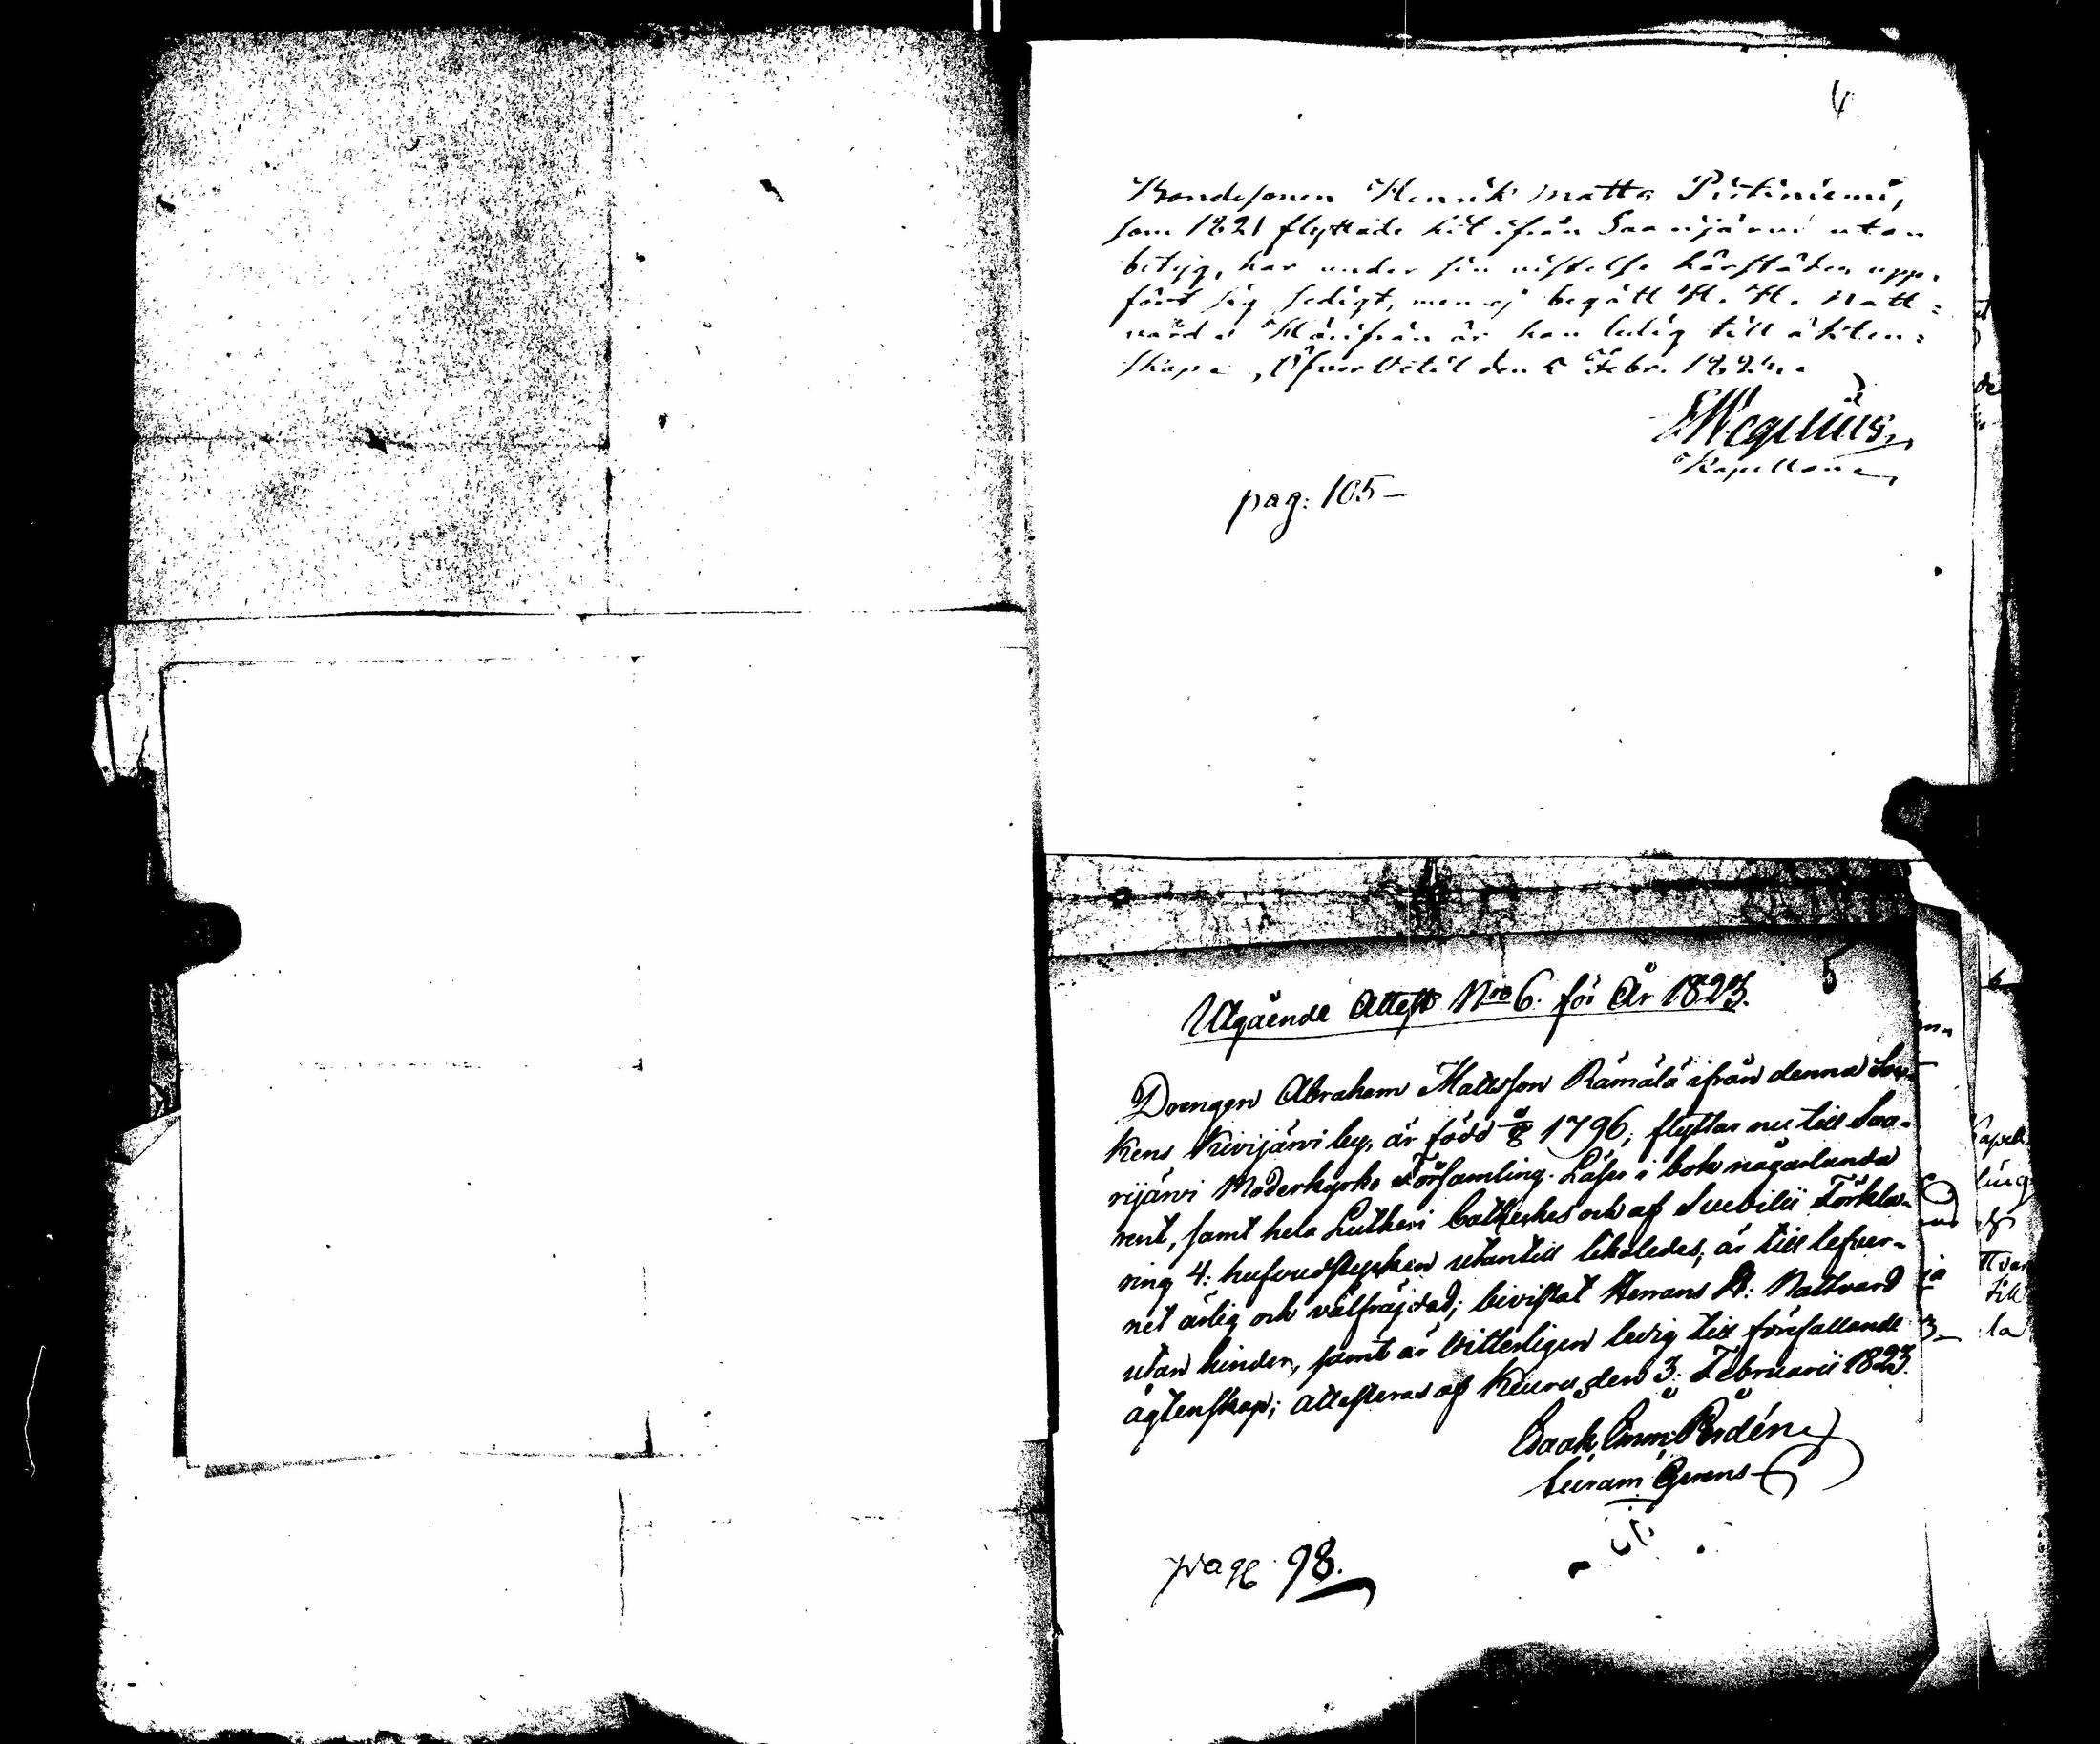 4
Bondesonen Henrik Matts Pistiniemi,
som 1821 flyttade hit ifrån Saarijärvi utan
betyg, har under sin vistelse härstädes upp-
fört sig sedigt, men ej begått H. H. Natt-
vard. Härifrån är han ledig till äkten-
skap. Öfver Vetil den 5 Febr.
Wegelius
Kapellan
pag: 105
5
Utgående Attest Nro 6. för År 1823.
Drengen Abraham Mattsson Rämälä ifrån denna Soc-
kens Kivijärvi by, är född 1796, flyttar nu till Saa-
rijärvi Moderkyrko Församling. Läser i bok någorlunda
rent, samt hela Lutheri Catheches och af Svebilii Förkla-
ring 4: hufvudstycken utantill likaledes; är till lefver-
net ärlig och välfräjdad; bivistat Herrans H: Nattvard
utan hinder, samt är Vitterligen ledig till förefallande
ägtenskap; attesteras af Keuru den 3: Februarii 1823.
Isaak Em: Rodén
Curam Gerens
pag 98.